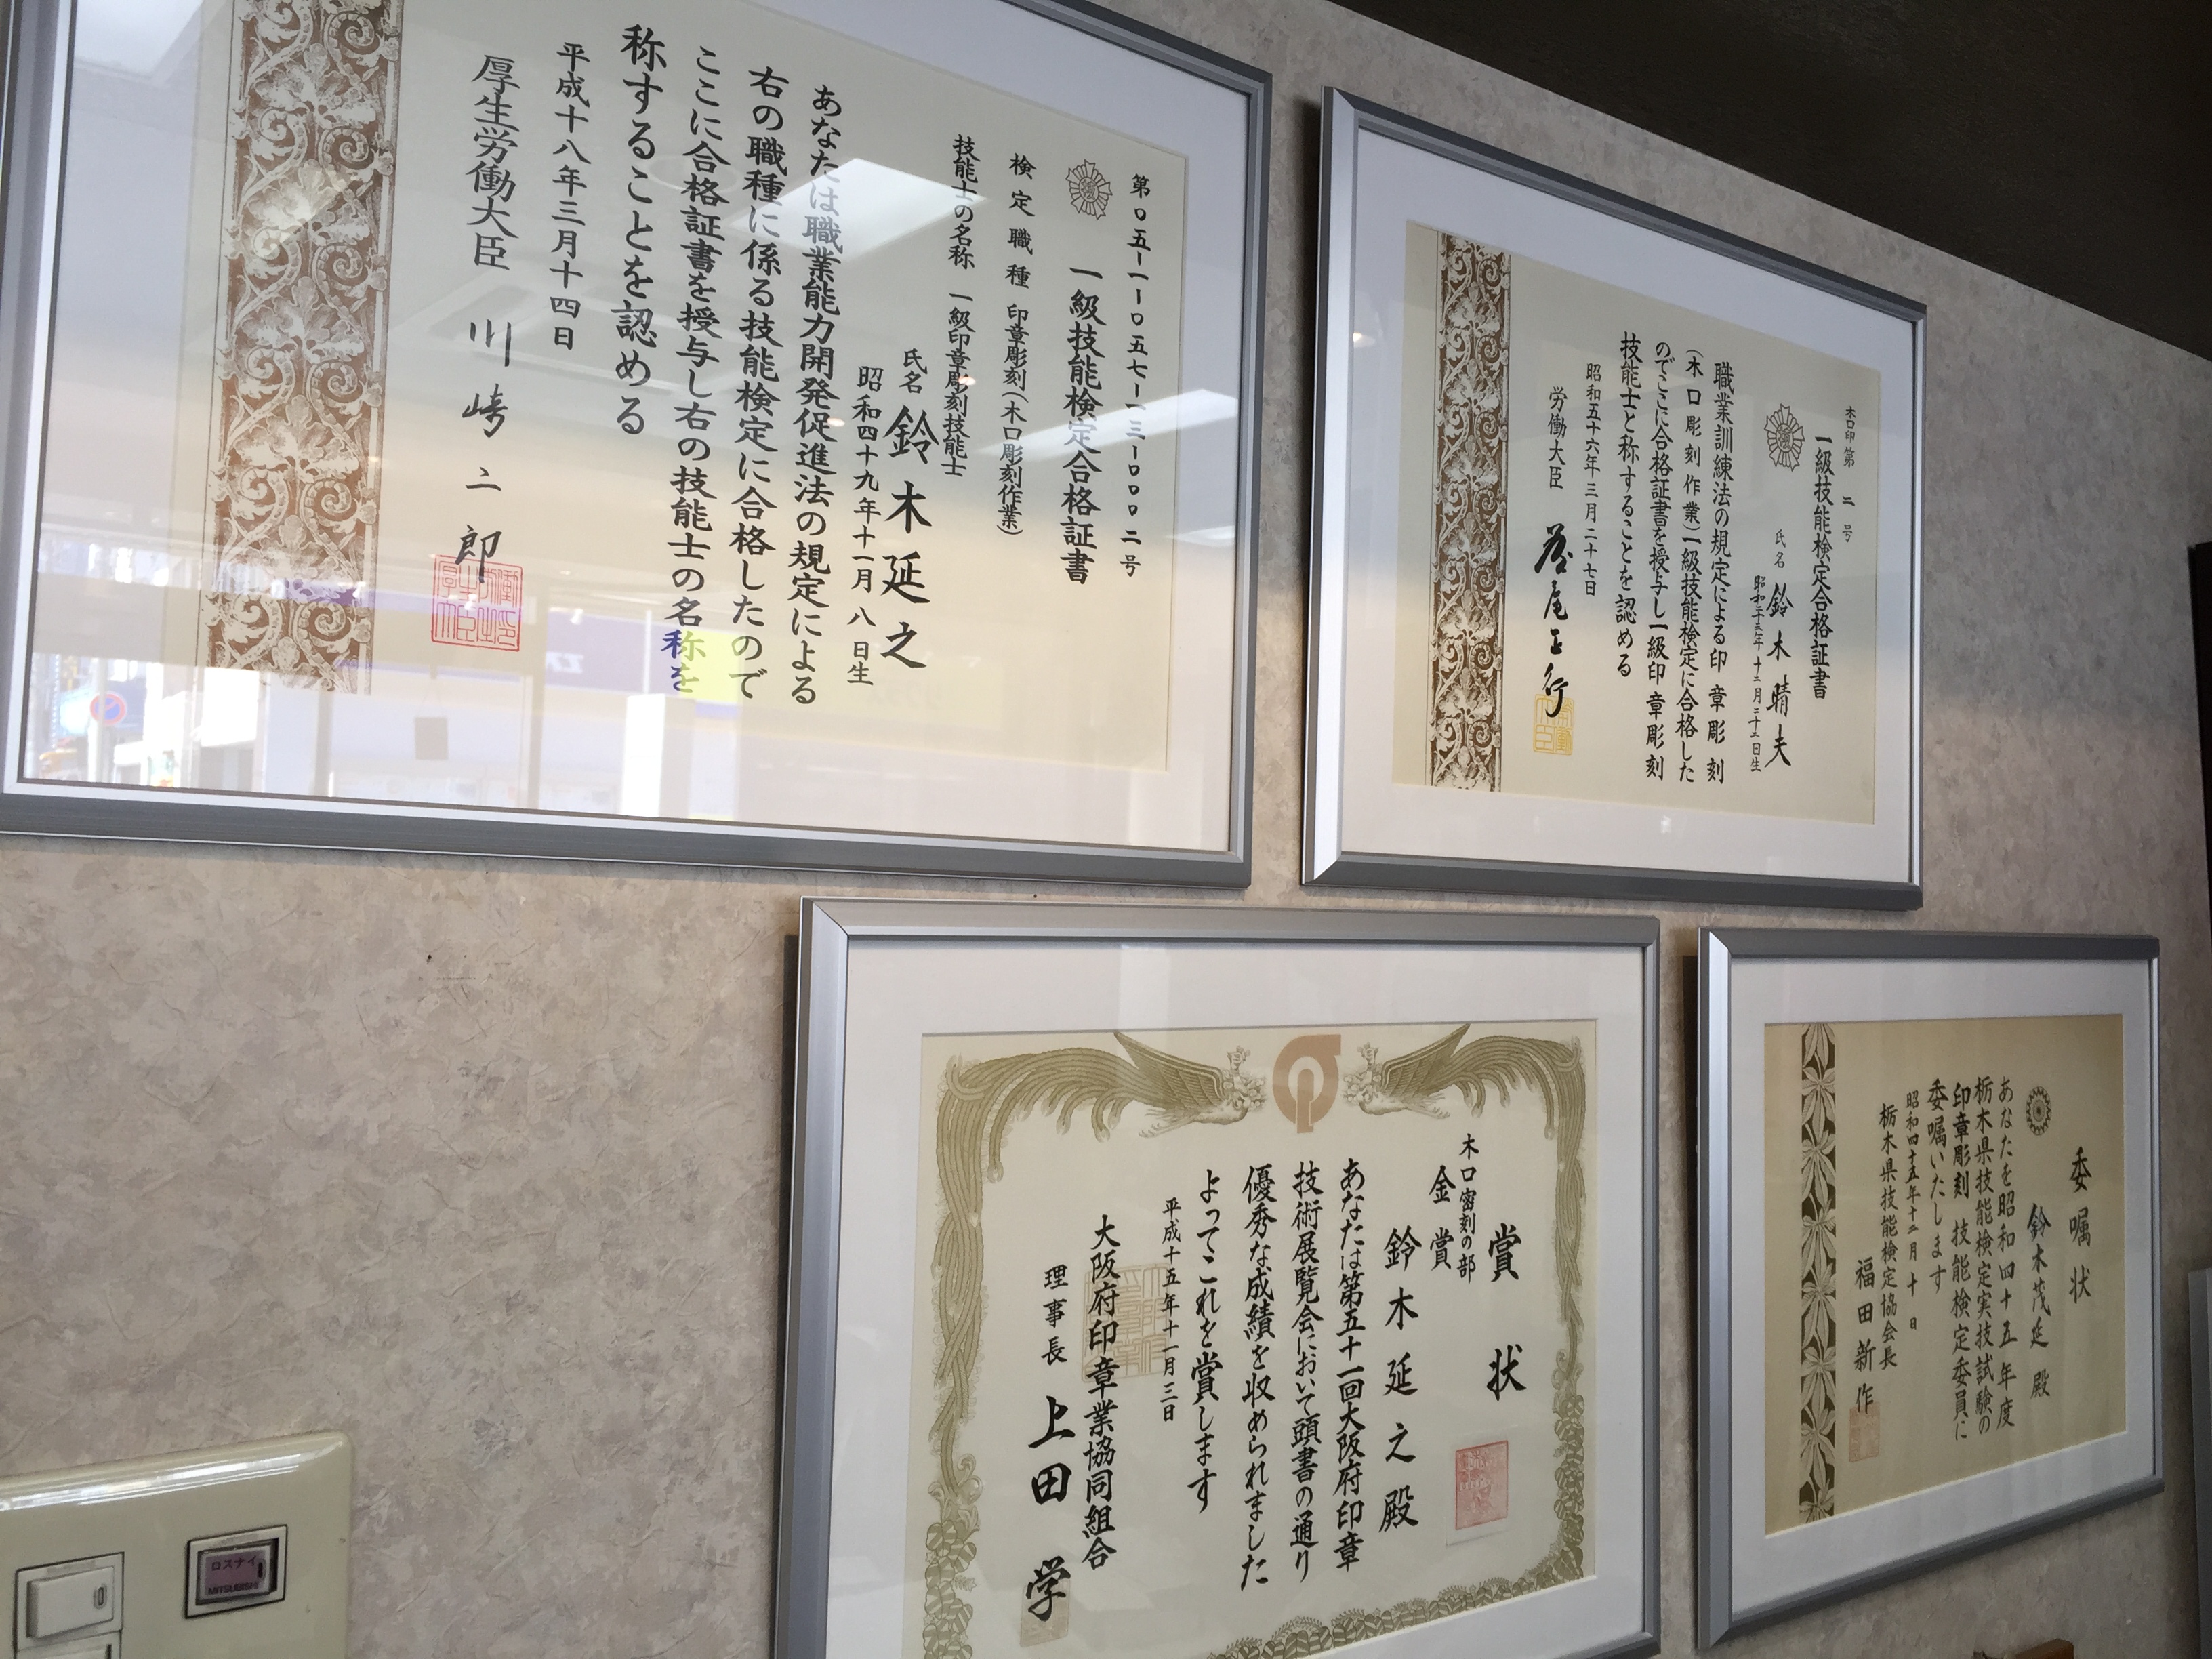 第〇五-一-〇五七-一三-〇〇〇二号
一級技能検定合格証書
検定職種 印章彫刻(木口彫刻作業)
技能士の名称 一級印章彫刻技能士
氏名 鈴木延之
昭和四十九年十一月八日生
あなたは職業能力開発促進法の規定による
右の職種に係る技能検定に合格したので
ここに合格証書を授与し右の技能士の名称を
称することを認める
平成十八年三月十四日
厚生労働大臣 川崎二郎
木口印第 二 号
一級技能検定合格証書
氏名 鈴木晴夫
昭和二十五年十二月二十二日生
職業訓練法の規定による印章彫刻
(木口彫刻作業)一級技能検定に合格した
のでここに合格証書を授与し一級印章彫刻
技能士と称することを認める
昭和五十六年三月二十七日
労働大臣 藤尾正行
賞状
木口密刻の部
金賞
鈴木延之殿
あなたは第五十一回大阪府印章
技術展覧会において頭書の通り
優秀な成績を収められました
よってこれを賞します
平成十五年十一月三日
大阪府印章業協同組合
理事長 上田学
委嘱状
鈴木茂延殿
あなたを昭和四十五年度
栃木県技能検定実技試験の
印章彫刻 技能検定委員に
委嘱いたします
昭和四十五年十二月十日
栃木県技能検定協会長
福田新作
ロスナイ
MITSUBISHI